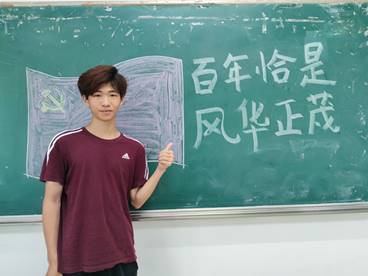 百年恰是
风华正茂
adidas